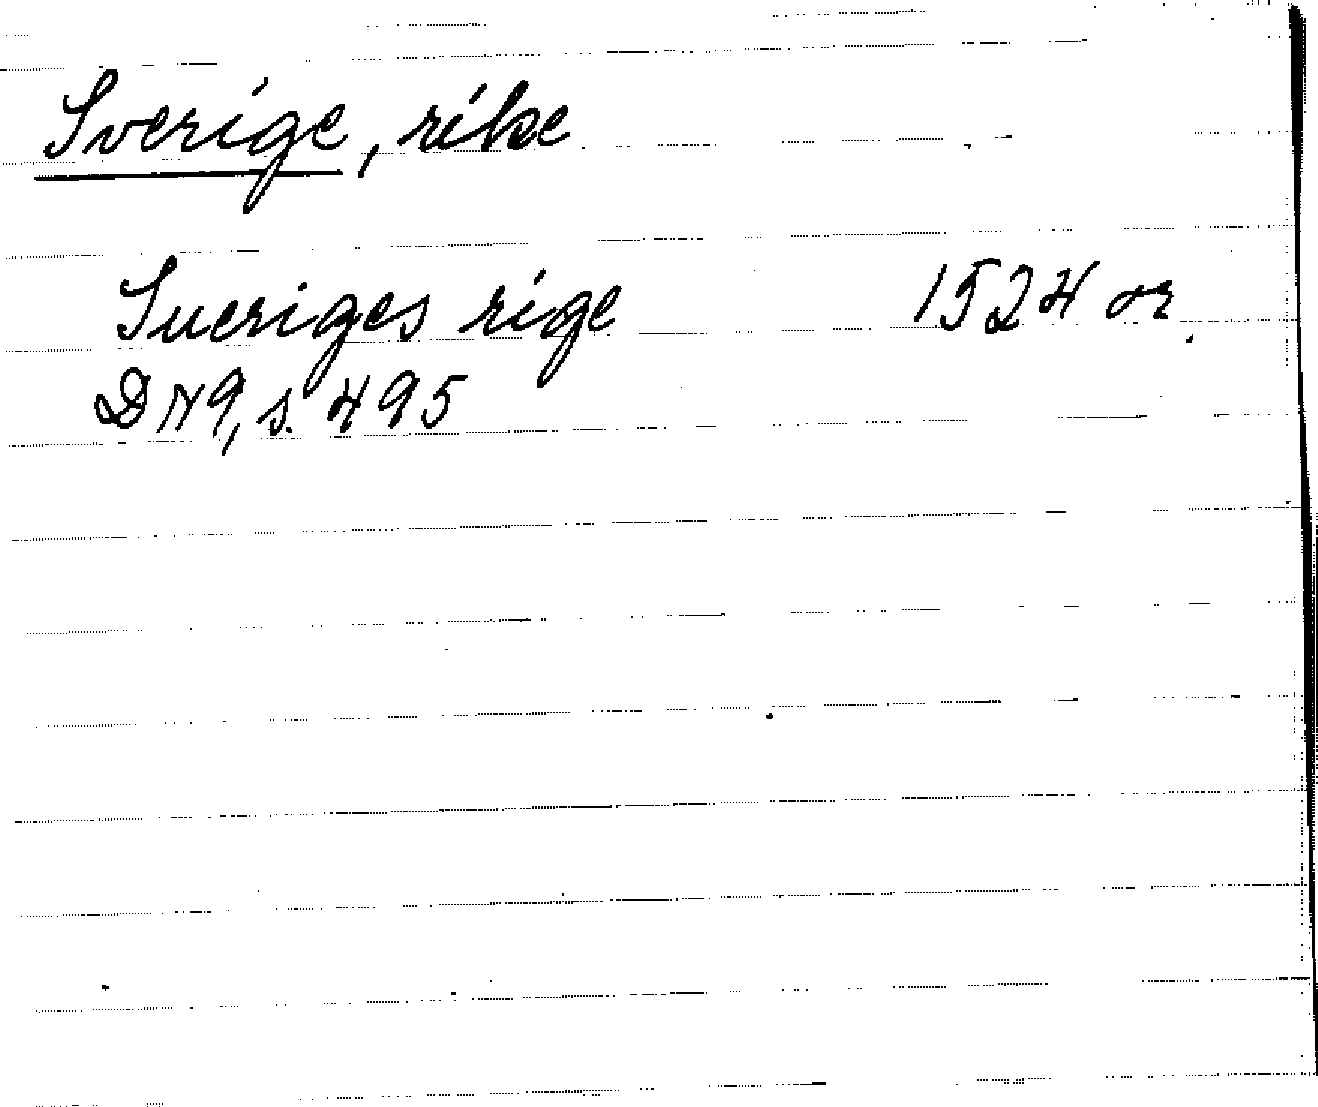 Sverige, rike
Sueriges rige 1524 or.
DN9, s. 495